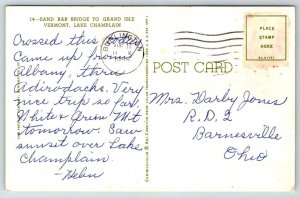 14—SAND BAR BRIDGE TO GRAND ISLE
VERMONT, LAKE CHAMPLAIN
Crossed this today
Came up from
Albany, thru
Adirodacks. Very
nice trip so far
White & Green Mt
tomorrow. Saw
sunset over Lake
Champlain.
Helen
BURLINGTON
POST CARD
PLACE
STAMP
HERE
Mrs. Darby Jones
R.D. 2
Barnesville
Ohio